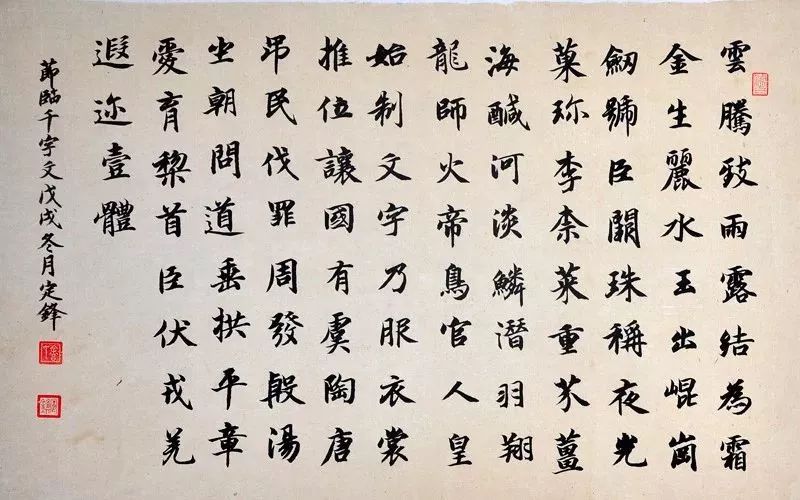 雲騰致雨露結為霜
金生麗水玉出崐崗
劒號巨闕珠稱夜光
菓珎李柰菜重芥薑
海醎河淡鱗潛羽翔
龍師火帝鳥官人皇
始制文字乃服衣裳
推位讓國有虞陶唐
弔民伐罪周發殷湯
坐朝問道垂拱平章
愛育黎首臣伏戎羌
遐迩壹體
節臨千字文戊戌冬月定鋒